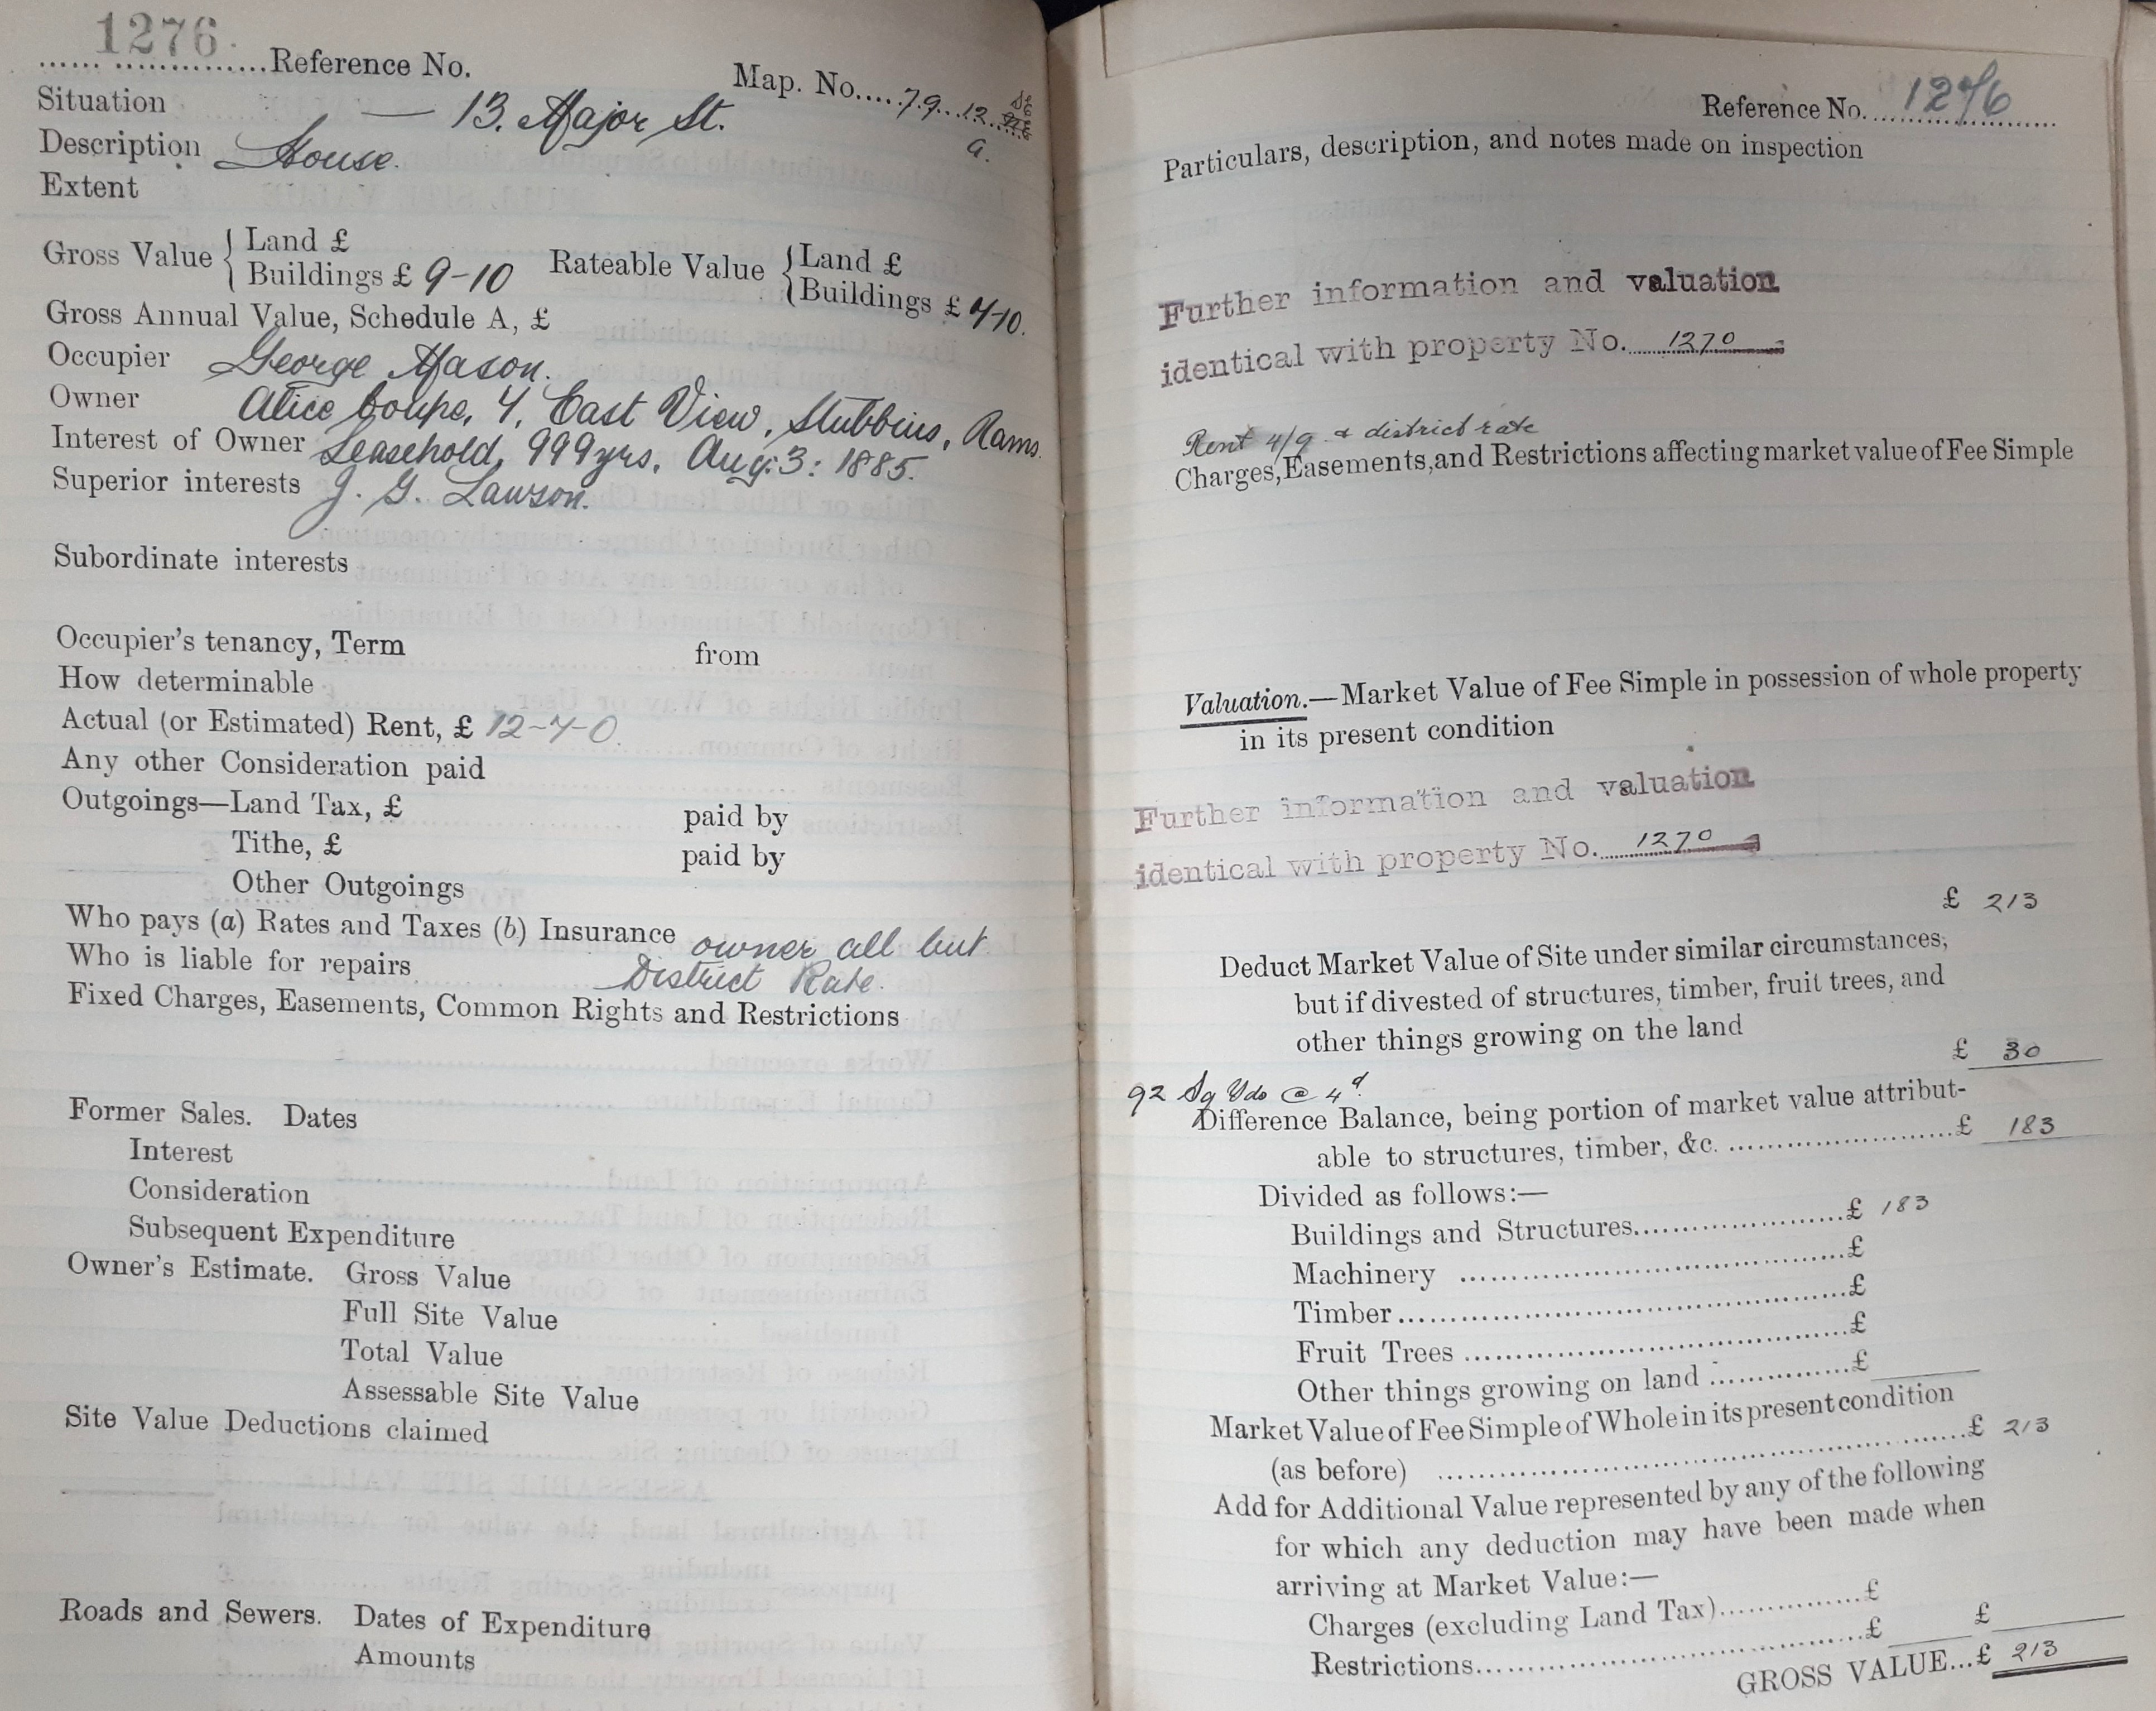 1276.
Reference No.
Map. No. 79. 12.
Situation — 13. Major St. a.
Description House.
Extent
Gross Value { Land £
Buildings £ 9-10
Rateable Value { Land £
Buildings £ 7-10.
Gross Annual Value, Schedule A, £
Occupier George Mason.
Owner Alice Coupe, 4, East View, Stubbins, Rams.
Interest of Owner Leasehold, 999 yrs, Aug: 3: 1885.
Superior interests J. G. Lawson.
Subordinate interests
Occupier's tenancy, Term from
How determinable
Actual (or Estimated) Rent, £ 12-7-0
Any other Consideration paid
Outgoings—Land Tax, £ paid by
Tithe, £ paid by
Other Outgoings
Who pays (a) Rates and Taxes (b) Insurance owner all but
Who is liable for repairs District Rate.
Fixed Charges, Easements, Common Rights and Restrictions
Former Sales. Dates
Interest
Consideration
Subsequent Expenditure
Owner's Estimate. Gross Value
Full Site Value
Total Value
Assessable Site Value
Site Value Deductions claimed
Roads and Sewers. Dates of Expenditure
Amounts
Reference No. 1276
Particulars, description, and notes made on inspection
Further information and valuation
identical with property No. 1270
Rent 4/9 & district rate
Charges, Easements, and Restrictions affecting market value of Fee Simple
Valuation.—Market Value of Fee Simple in possession of whole property
in its present condition
Further information and valuation
identical with property No. 1270
£ 213
Deduct Market Value of Site under similar circumstances,
but if divested of structures, timber, fruit trees, and
other things growing on the land
£ 30
92 Sq Yds @ 4d
Difference Balance, being portion of market value attribut-
able to structures, timber, &c. £ 183
Divided as follows:—
Buildings and Structures £ 183
Machinery £
Timber £
Fruit Trees £
Other things growing on land £
Market Value of Fee Simple of Whole in its present condition
(as before) £ 213
Add for Additional Value represented by any of the following
for which any deduction may have been made when
arriving at Market Value:—
Charges (excluding Land Tax) £
Restrictions £ £
GROSS VALUE...£ 213